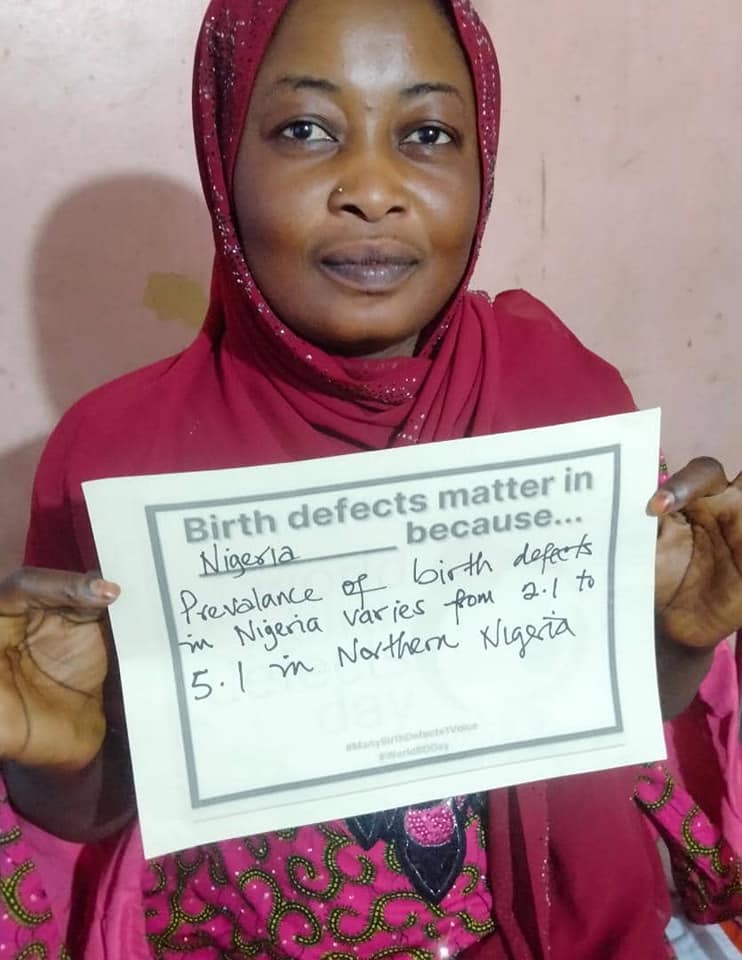 Birth defects matter in
Nigeria because...
Prevalance of birth defects
in Nigeria varies from 2.1 to
5.1 in Northern Nigeria
#ManyBirthDefects1Voice
#WorldBDDay